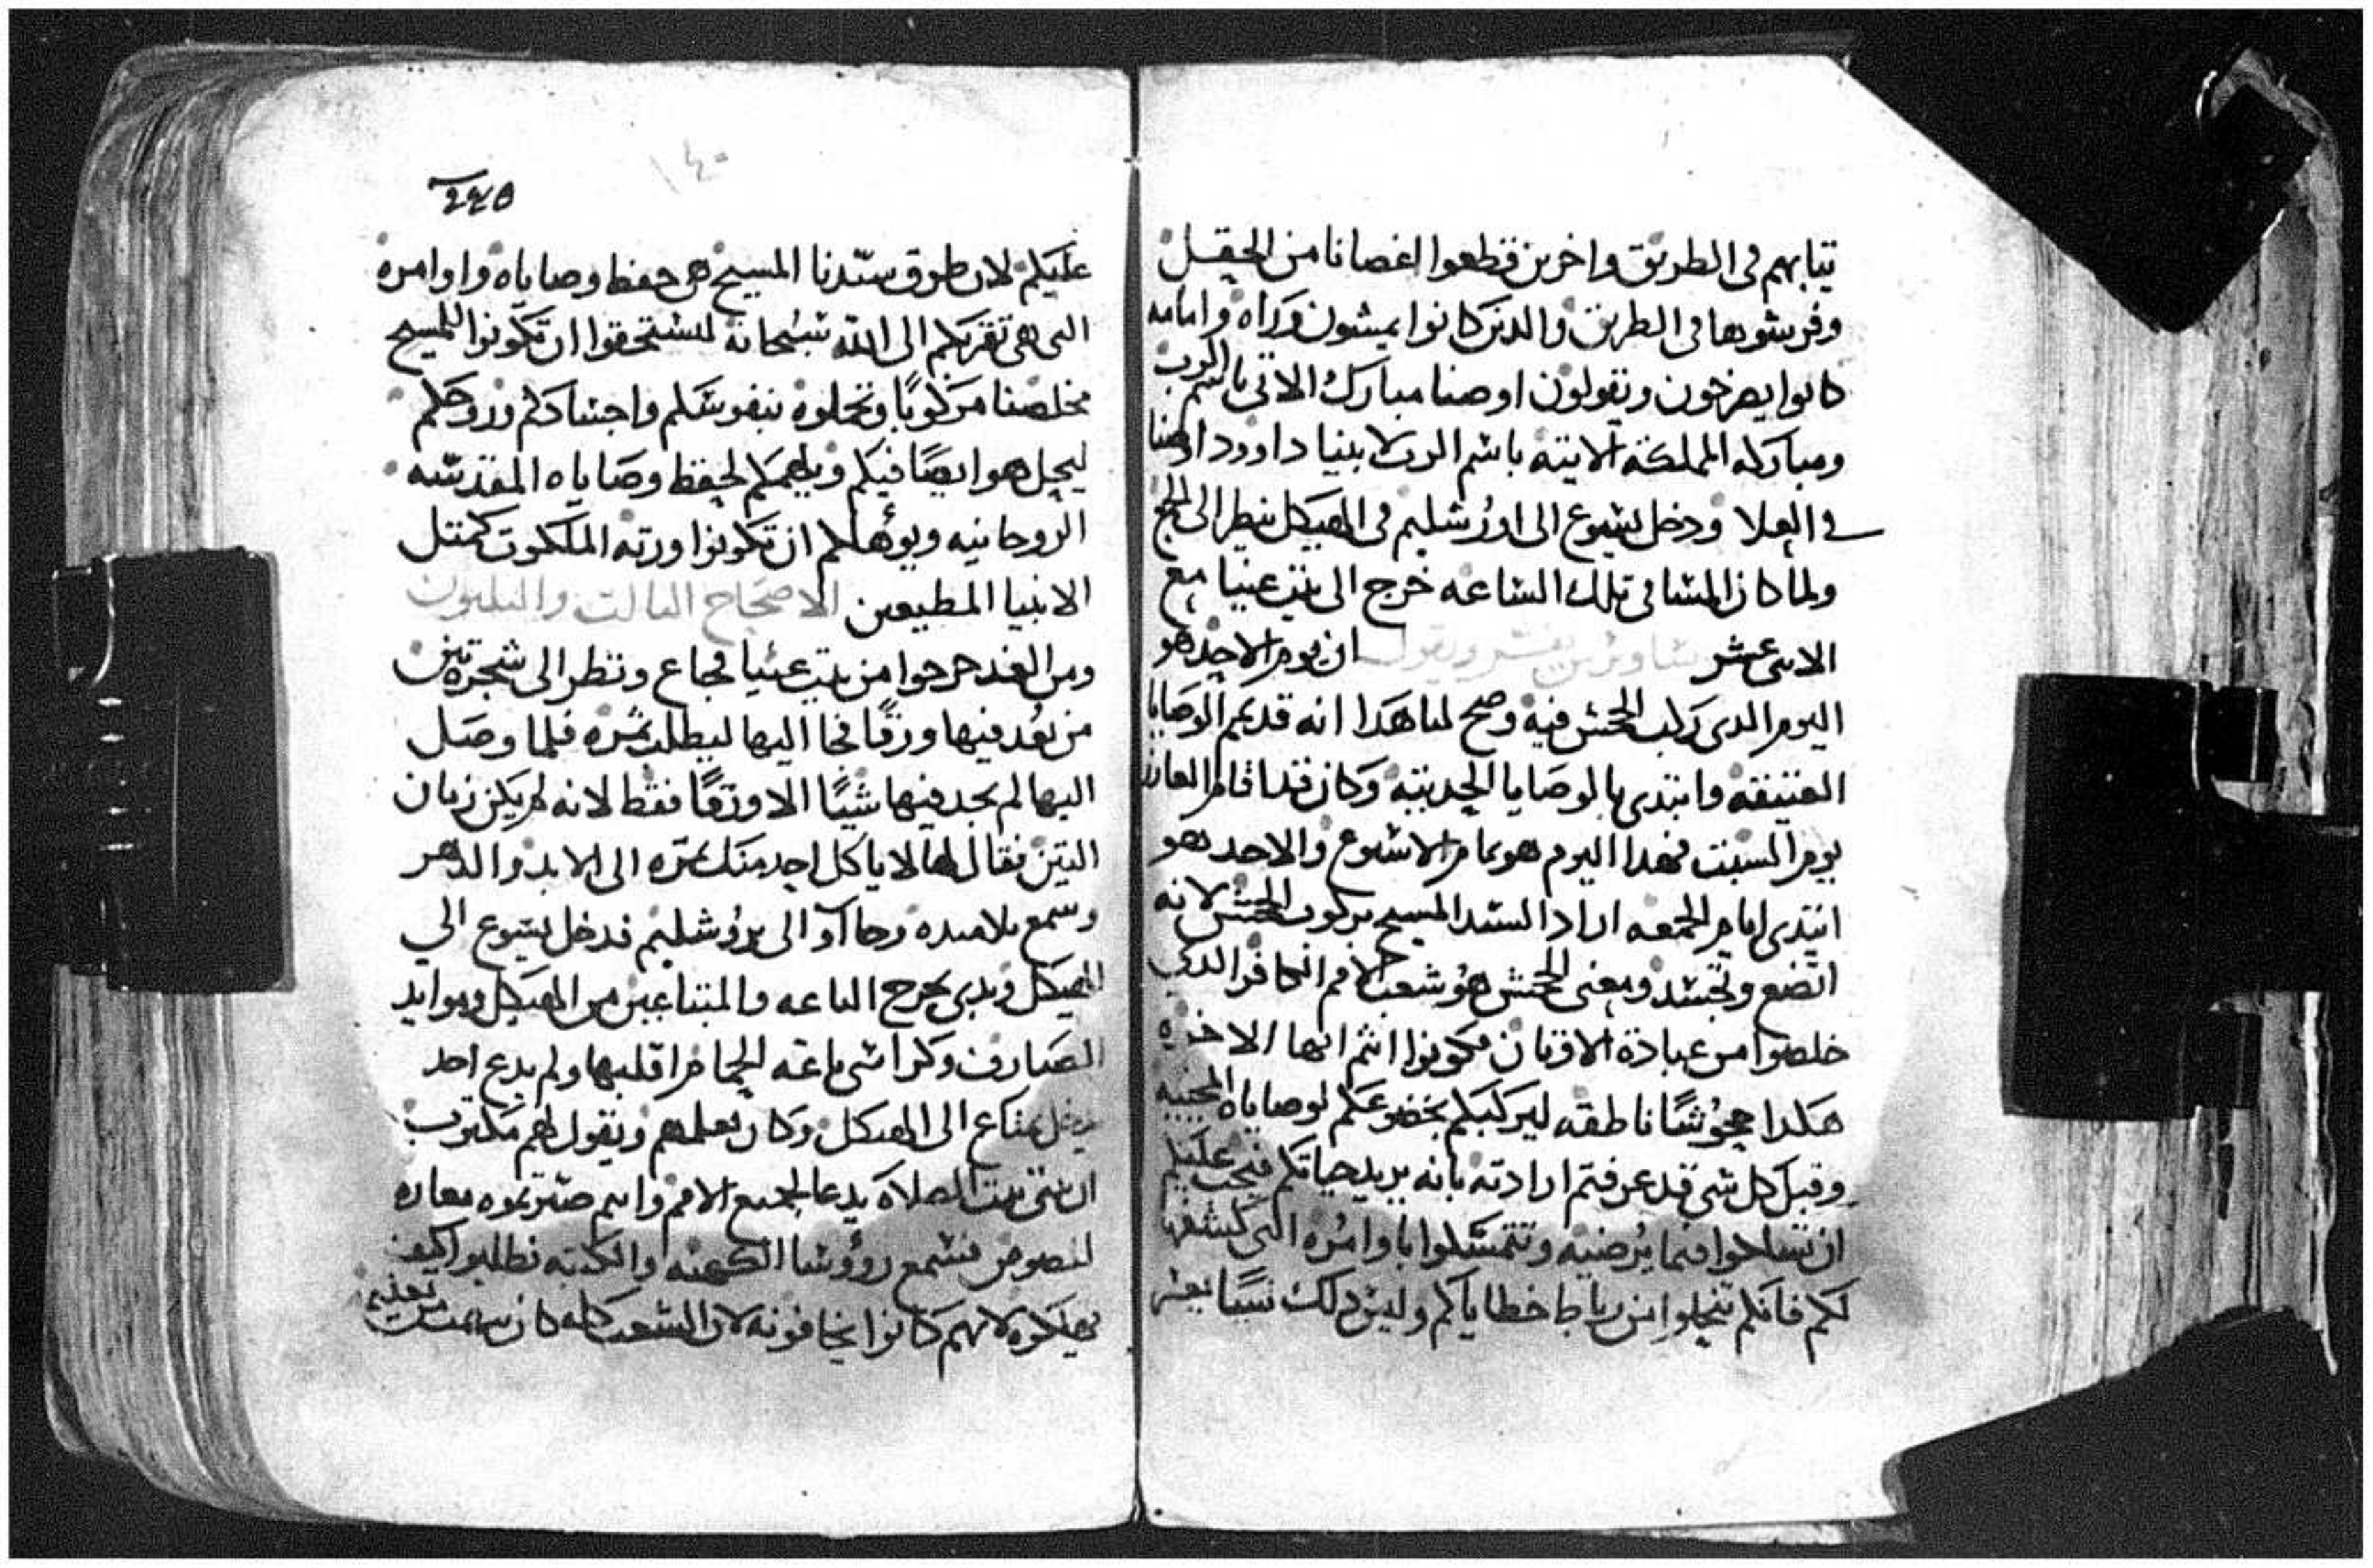 تيابهم فى الطريق واخرين قطعوا اغصانا من الحقل
وفرشوها فى الطريق والدين كانوا يمشون وراه وامامه
كانوا يصرخون ويقولون اوصنا مبارك الاتى باسم الرب
ومباركه المملكة الاتيه باسم الرب لابينا داوود اوصنا
فى العلا ودخل يسوع الى اورشليم فى الهيكل ينطر الى الجمع
ولما كان المسا فى تلك الساعه خرج الى بيت عنيا مع
الاتنى عشر ساويرس يفسر ويقول ان يوم الاحد هو
اليوم الدى ركب الجحش فيه وصح لنا هدا انه قديم الوصايا
العتيقه وابتدى بالوصايا الجديته وكان قد اقام العازر
يوم السبت فهدا اليوم هو تمام الاسبوع والاحد هو
ابتدى ايام الجمعه اراد السيد المسيح بركوب الجحش لانه
اتضع وتجسد ومعنى الجحش هو شعب الامم الكافر الدى
خلصوا من عبادة الاوتان فكونوا انتم ايها الاخوه
هكدا جحوشًا ناطقه ليركبكم بخضوعكم لوصاياه المحييه
وقبل كل شى قد عرفتم ارادته بانه يريد حياتكم فيجب عليكم
ان تسارعوا فيما يرضيه وتتمسكوا باوامره التى كشفها
لكم فانكم تنحلوا من رباط خطاياكم وليس دلك شيًا يعسر
٢٤٥
١٤٠
عليكم لان طرق سيدنا المسيح هى حفظ وصاياه واوامره
التى هى تقربكم الى الله سبحانه لتستحقوا ان تكونوا للمسيح
مخلصنا مركوبًا وتحملوه بنفوسكم واجسادكم وروحكم
ليحل هو ايضًا فيكم ويلهمكم لحفظ وصاياه المقدسه
الروحانيه ويؤهلكم ان تكونوا ورته الملكوت كمتل
الانبيا المطيعين الاصحاح التالت والتلتون
ومن الغد خرجوا من بيت عنيا فجاع ونظر الى شجرة تين
من بُعد فيها ورقًا فجا اليها ليطلب تمره فلما وصل
اليها لم يجد فيها شيًا الا ورقًا فقط لانه لم يكن زمان
التين فقال لها لا ياكل احد منك تمره الى الابد والدهر
وسمع تلاميده وجاآو الى يروشليم فدخل يسوع الي
الهيكل وبدى يخرج الباعه والمبتاعين من الهيكل وموايد
الصيارف وكراسى باعه الحمام اقلبها ولم يدع احد
يدخل بمتاع الى الهيكل وكان يعلمهم ويقول لهم مكتوب
ان بيتى بيت الصلاة يدعا لجميع الامم وانتم صيرتموه مغاره
لصوص فسمع رؤوسا الكهنه والكتبه فطلبوا كيف
يهلكوه لانهم كانوا يخافونه لان الشعب كله كان يبهت من تعليمه